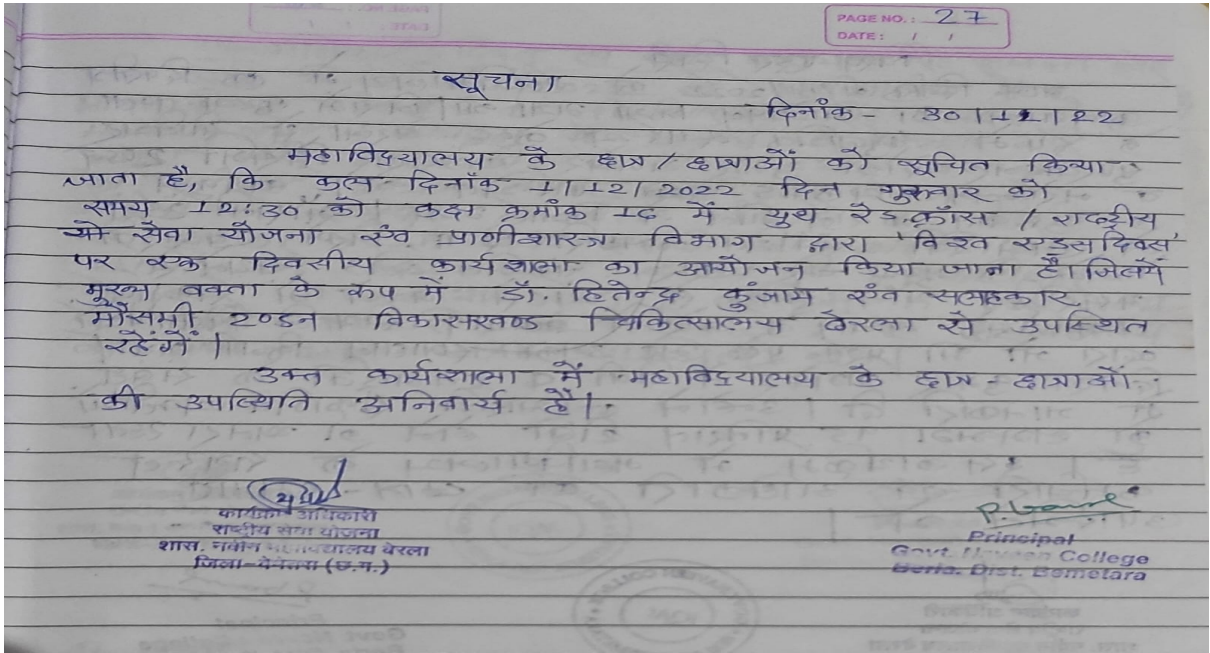 PAGE NO.: 27
DATE: / /
सूचना
दिनांक - 30/11/22
महाविद्यालय के छात्र/छात्राओं को सूचित किया
जाता है, कि कल दिनाँक 1/12/2022 दिन गुरूवार को
समय 12:30 को कक्ष क्रमांक 16 में युथ रेड.क्रॉस / राष्ट्रीय
सेवा योजना एंव प्राणीशास्त्र विभाग द्वारा 'विश्व एड्स दिवस'
पर एक दिवसीय कार्यशाला का आयोजन किया जाना है। जिसमें
मुख्य वक्ता के रूप में डॉ. हितेन्द्र कुंजाम एंव सलाहकार
मौसमी टण्डन विकासखण्ड चिकित्सालय बेरला से उपस्थित
रहेगें।
उक्त कार्यशाला में महाविद्यालय के छात्र-छात्राओं
की उपस्थिति अनिवार्य हैं।
कार्यक्रम अधिकारी
राष्ट्रीय सेवा योजना
शास. नवीन महाविद्यालय बेरला
जिला-बेमेतरा (छ.ग.)
Principal
Govt. Naveen College
Berla, Dist. Bemetara